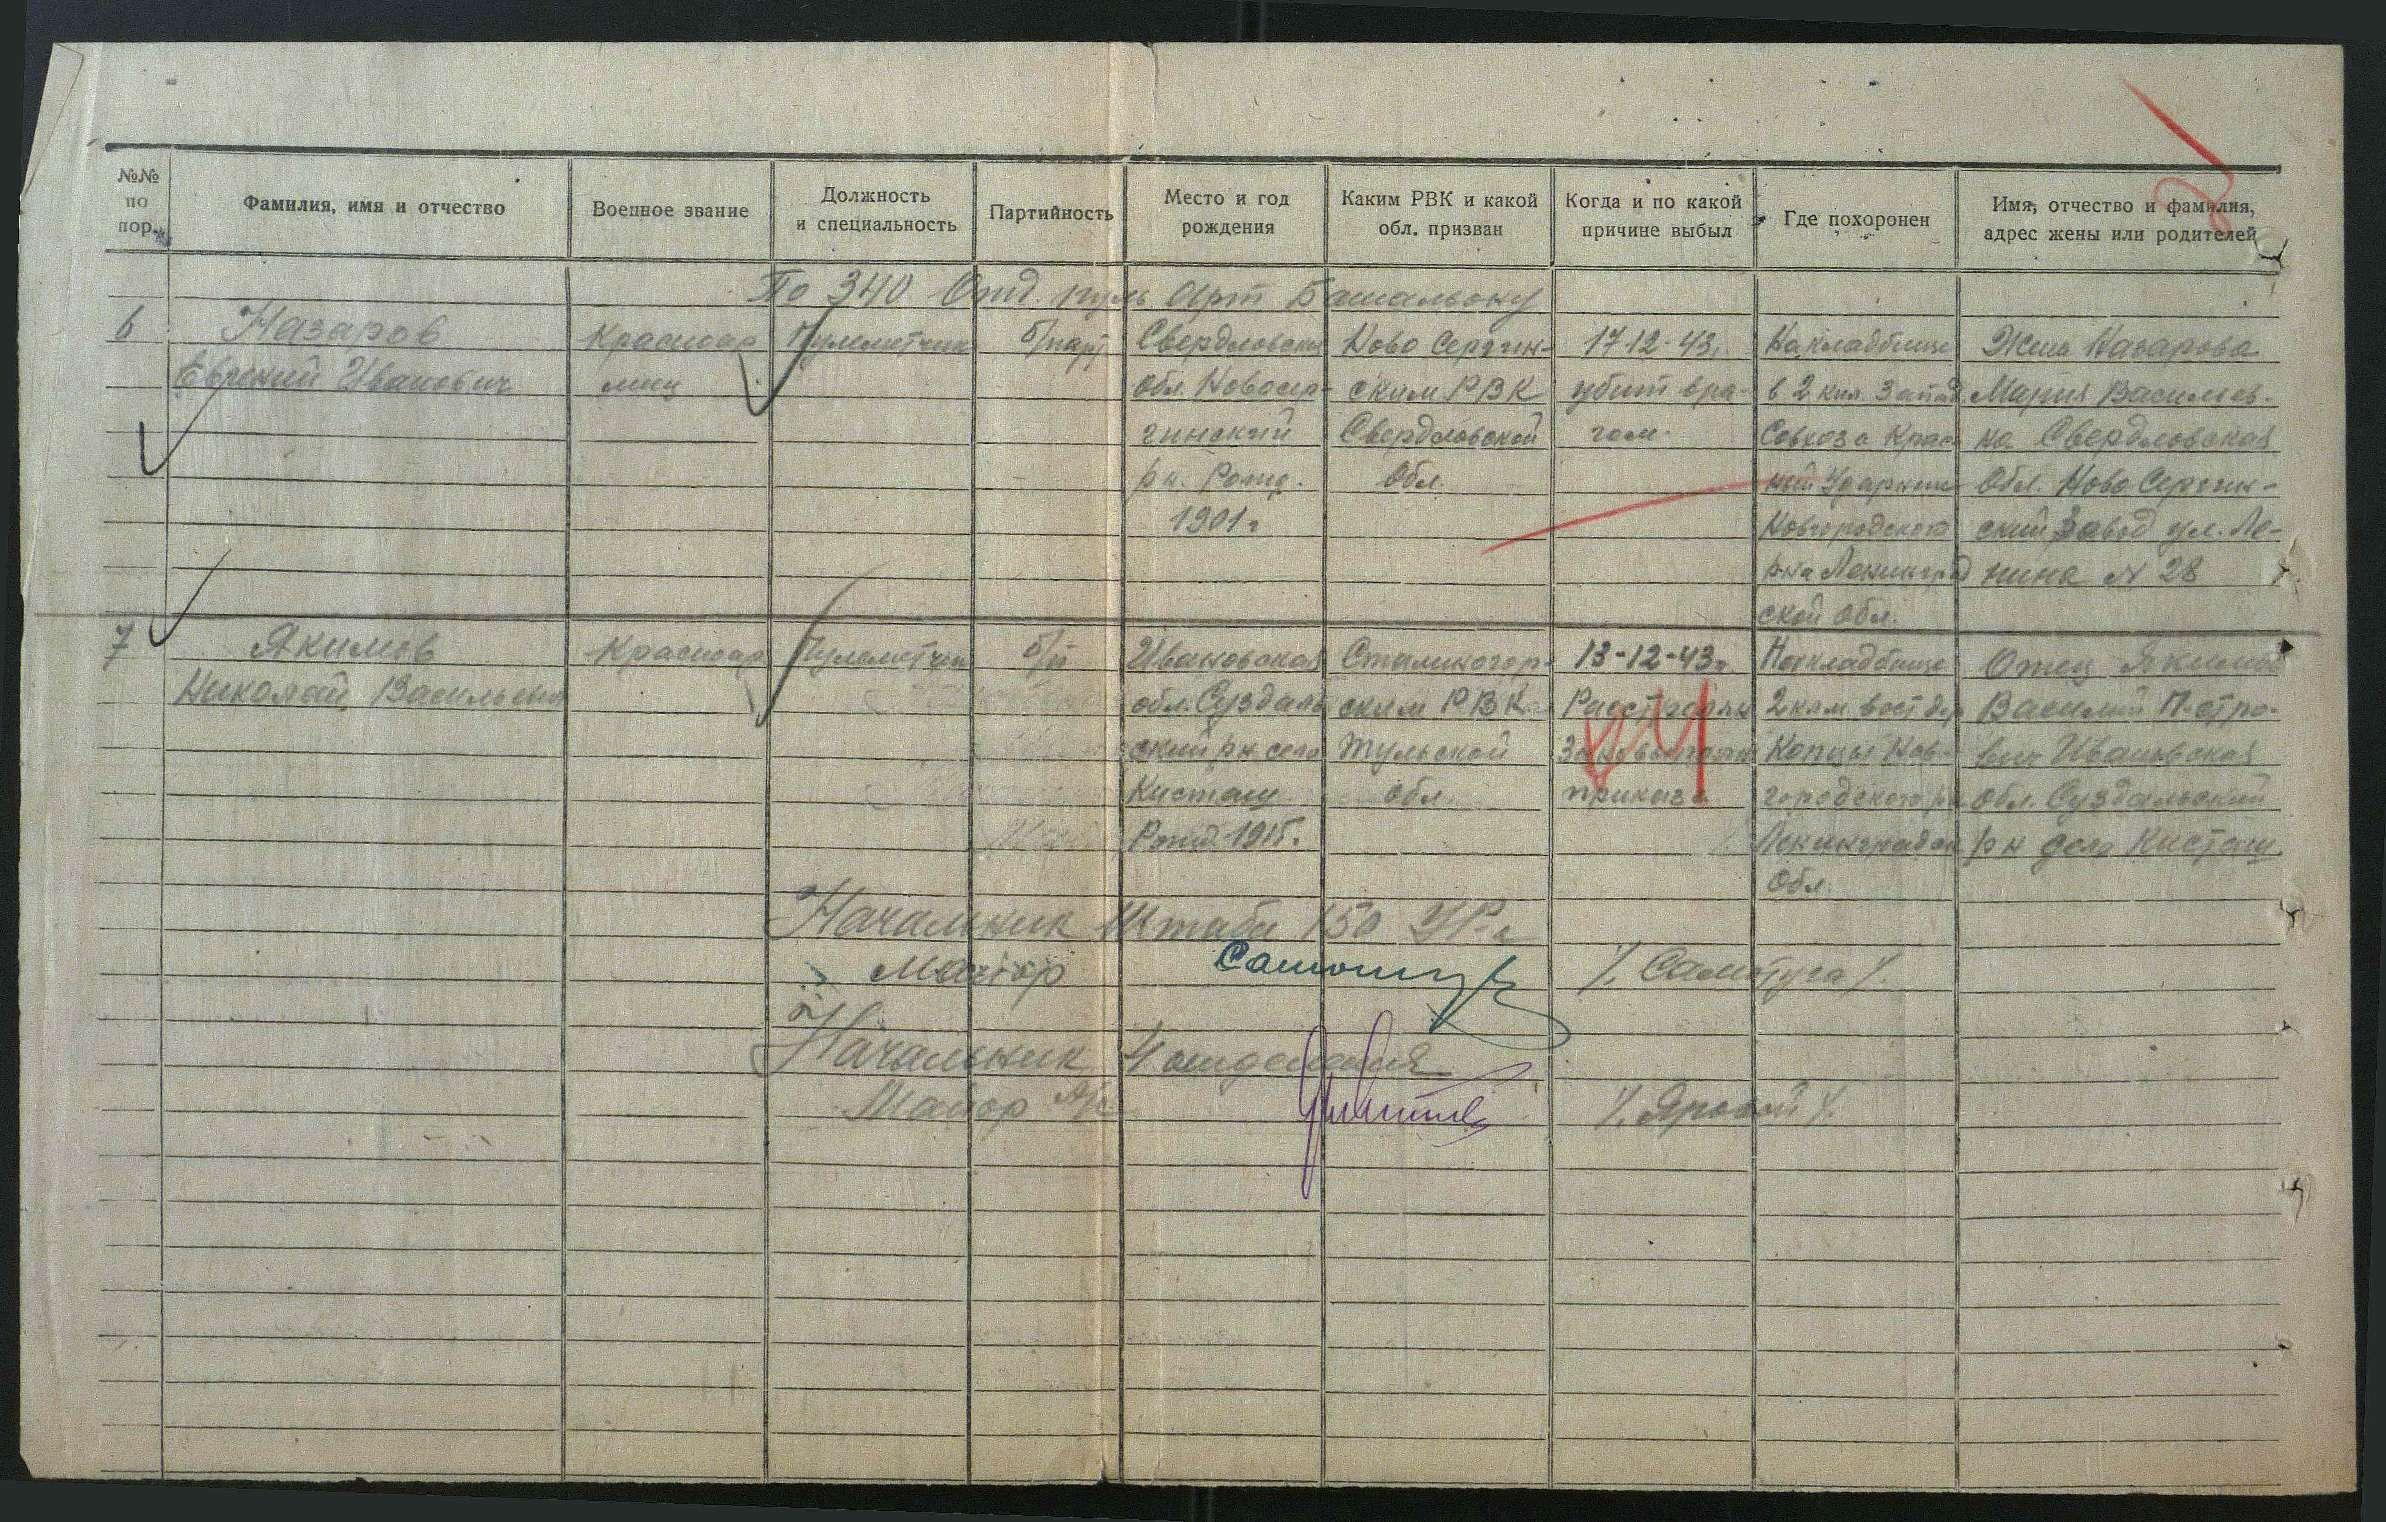 №№ по пор.
Фамилия, имя и отчество
Военное звание
Должность и специальность
Партийность
Место и год рождения
Каким РВК и какой обл. призван
Когда и по какой причине выбыл
Где похоронен
Имя, отчество и фамилия, адрес жены или родителей
По 340 Отд. пуль Арт Батальону
6
Назаров
Евгений Иванович
Красноар
меец
Пулеметчик
б/парт
Свердловская
обл. Новосер-
гинский
р н. Рожд.
1901г
Ново Сергин-
ским РВК
Свердловской
Обл.
17-12-43г.
убит вра-
гом.
На кладбище
в 2 клм. Запад
Совхоза Крас
ный Ударник
Новгородского
р-на Ленинград
ской обл.
Жена Назарова
Мария Васильев-
на Свердловская
Обл. Ново Сергин-
ский Завод ул. Ле-
нина № 28
7
Якимов
Николай Васильевич
Красноар
Пулеметчик
б/п
Ивановская
обл. Суздаль
ский рн село
Кистыш
Рожд. 1915г.
Сталиногор-
ским РВК
Тульской
Обл
13-12-43г.
Расстрелян
За невыполн
приказа
На кладбище
2 клм. вост дер
Копцы Нов-
городского рн
Ленинградск
Обл.
Отец Якимов
Василий Петро-
вич Ивановская
Обл. Суздальский
р н село Кистыш
Начальник Штаба 150 УР-а
Майор
/. Самотуга /.
Начальник 4 отделения
Майор А/с
/. Яровой /.